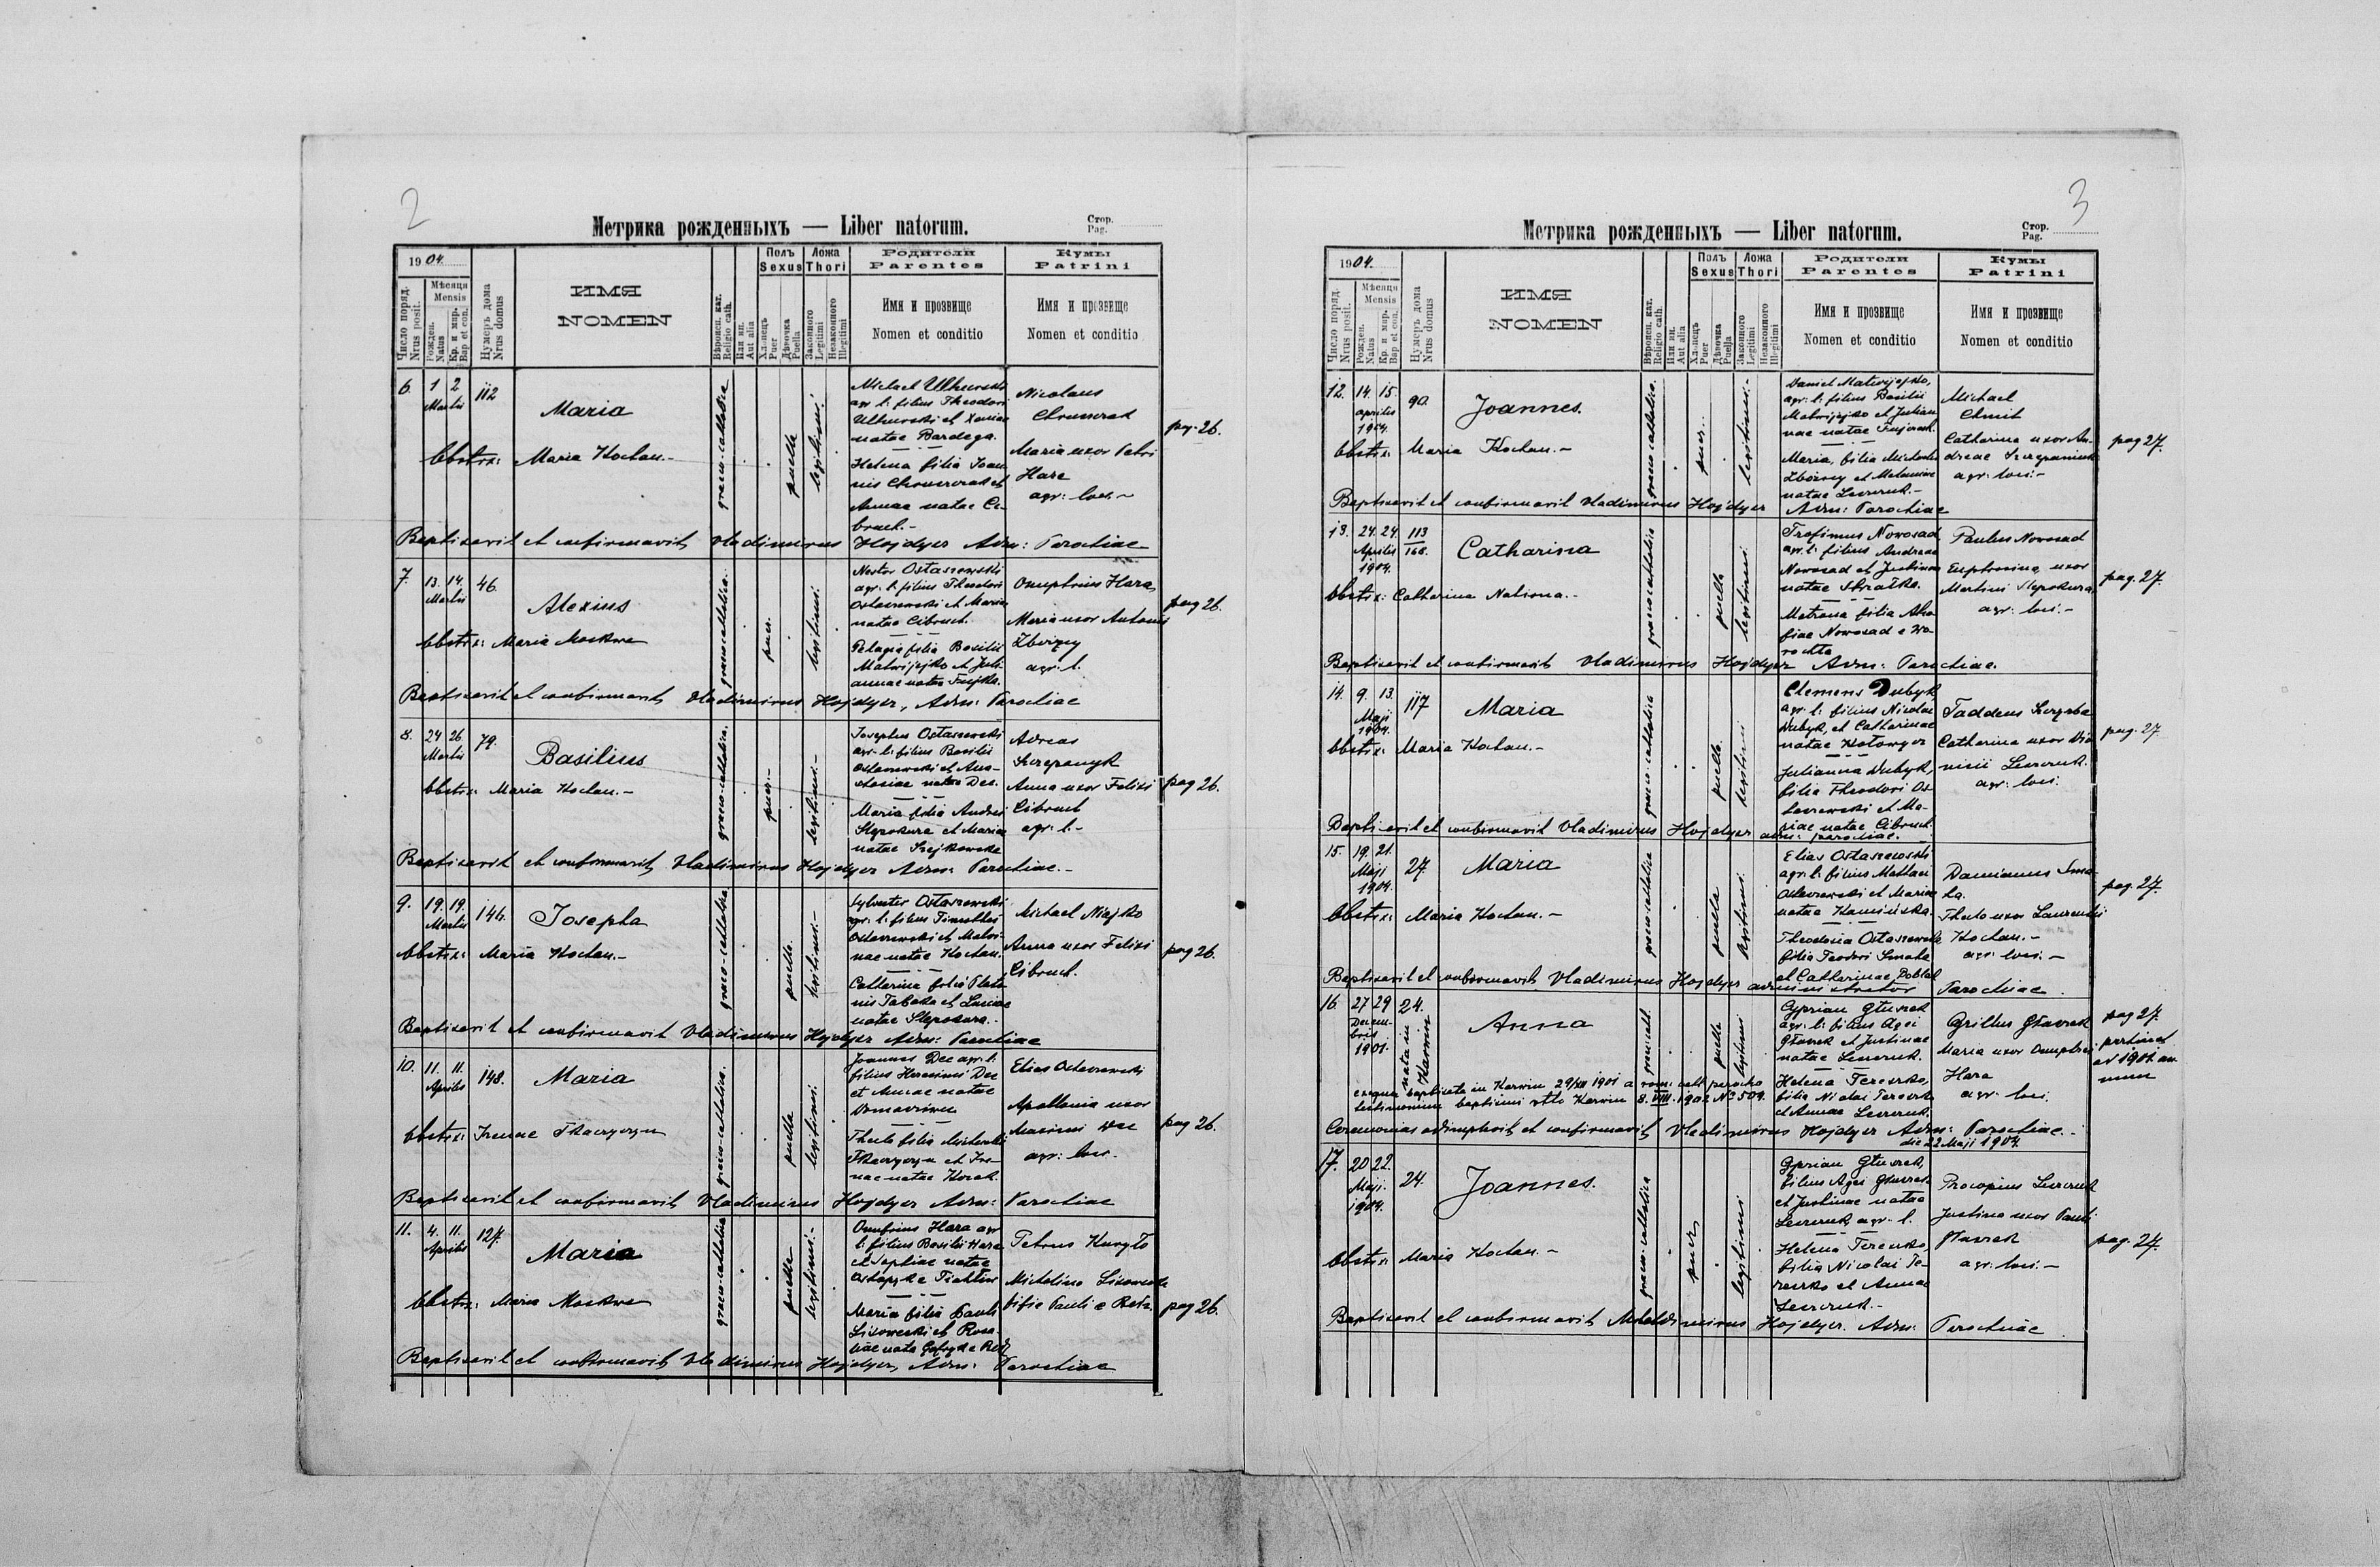 2
Метрика рожденныхъ — Liber natorum.
Стор.
Pag.
1904.
Число поряд.
Nrus posit.
Мѣсяця
Mensis
Рожден.
Natus
Кр. и мѵр.
Bap et con.
Нумеръ дома
Nrus domus
ИМЯ
NOMEN
Вѣроисп. кат.
Religio cath.
Или ин.
Aut alia
Полъ
Sexus
Хлопецъ
Puer
Дѣвочка
Puella
Ложа
Thori
Законного
Legitimi
Незаконного
Illegitimi
Родители
Parentes
Имя и прозвище
Nomen et conditio
Кумы
Patrini
Имя и прозвище
Nomen et conditio
6. 1 2 Martii 112
Maria
Obstetrix: Maria Kochan.-
graeco-catholica
puella
legitimi.
Michael
agr. l. filius Theodori
et Xeniae
natae Bardega.
Helena filia Joan-
nis et
Annae natae Ci-
bruch.-
Nicolaus
Maria uxor Petri
Hara
agr: loci.-
pag. 26.
Baptisavit et confirmavit Vladimirus Hojdyer Adm: Parochiae
7. 13. 14. Martii 46.
Alexius
Obstetrix: Maria Moskwa
graeco-catholica.
puer.
legitimi.
Nestor Ostaszewski
agr. l. filius Theodori
Ostaszewski et Mariae
natae Cibruch.
Pelagia filia Basilii
Matwijejko et Juli-
annae natae
Onuphrius Hara
Maria uxor Antonii
agr. l.
pag 26.
Baptisavit et confirmavit Vladimirus Hojdyer, Adm: Parochiae
8. 24 26 Martii 79.
Basilius
Obstetrix: Maria Kochan.-
graeco-catholica.
puer.-
legitimi.-
Josephus Ostaszewski
agr. l. filius Basilii
Ostaszewski et Ana-
stasiae natae Dec.
Maria filia Andrei
Slepokura et Mariae
natae
Szczepanyk
Anna uxor Felixi
Cibruch
agr. l.-
pag 26.
Baptisavit et confirmavit Vladimirus Hojdyer Adm: Parochiae.-
9. 19. 19. Martii 146.
Josepha
Obstetrix: Maria Kochan.-
graeco-catholica
puella.
legitimi.-
Sylvester Ostaszewski
agr. l. filius Timothei
Ostaszewski et
natae Kochan.
Catharina filia Plato-
nis Tabaka et
natae Slepokura.-
Michael Niejko
Anna uxor Felixi
Cibruch.
pag 26.
Baptisavit et confirmavit Vladimirus Hojdyer Adm: Parochiae
10. 11. 11. Aprilis 148.
Maria
Obstetrix: Irenae Tkaczyszyn
graeco-catholica.
puella
legitimi.
Joannes Dec agr. l.
filius Dec
et Annae natae
Thecla filia Michaelis
Tkaczyszyn et Ire-
nae natae
Elias Ostaszewski
Apollonia uxor
Maximi Dec
agr: loci.
pag 26.
Baptisavit et confirmavit Vladimirus Hojdyer Adm: Parochiae
11. 4. 11. Aprilis 127.
Maria
Obstetrix: Maria Moskwa
graeco-catholica
puella
legitimi.-
Onufrius Hara agr
l. filius Basilii Hara
et Sophiae natae
Maria filia Pauli
Lisowski et
Petrus Kuryło
Michalina Lisowska
filia Pauli e
pag 26.
Baptisavit et confirmavit Vladimirus Hojdyer, Adm: Parochiae
3
Метрика рожденныхъ — Liber natorum.
Стор.
Pag.
1904.
Число поряд.
Nrus posit.
Мѣсяця
Mensis
Рожден.
Natus
Кр. и мѵр.
Bap et con.
Нумеръ дома
Nrus domus
ИМЯ
NOMEN
Вѣроисп. кат.
Religio cath.
Или ин.
Aut alia
Полъ
Sexus
Хлопецъ
Puer
Дѣвочка
Puella
Ложа
Thori
Законного
Legitimi
Незаконного
Illegitimi
Родители
Parentes
Имя и прозвище
Nomen et conditio
Кумы
Patrini
Имя и прозвище
Nomen et conditio
12. 14. 15. Aprilis 1904. 90.
Joannes.
Obstetrix: Maria Kochan.-
graeco-catholica.
puer.
legitimi.-
Daniel Matwijejko,
agr. l. filius Basilii
Matwijejko et Julian-
nae natae
Maria, filia Michaelis
et Melaniae
natae
Michael
Chmit
Catharina uxor An-
dreae Szczepaniuk
agr. loci.-
pag 27.
Baptisavit et confirmavit Vladimirus Hojdyer Adm: Parochiae
13. 24. 24. Aprilis 1904. 113/168.
Catharina
Obstetrix: Catharina
graeco-catholica
puella
legitimi.
Trofimus Nowosad,
agr. l. filius Andreae
Nowosad et Justinae
natae
Matrona filia
Nowosad e Wo-
rochta
Paulus Nowosad
Euphrosina uxor
Martini Slepokura
agr. loci.-
pag. 27.
Baptisavit et confirmavit Vladimirus Hojdyer Adm: Parochiae.
14. 9. 13. Maji 1904. 117
Maria
Obstetrix: Maria Kochan.-
graeco-catholica
puella.
legitimi
Clemens Dubyk
agr. l. filius Nicolai
Dubyk, et Catharinae
natae
Julianna Dubyk,
filia Theodori Os-
taszewski et Ma-
riae natae Cibruch.
Taddeus
Catharina uxor Dio-
nisii
agr: loci.
pag. 27
Baptisavit et confirmavit Vladimirus Hojdyer adm: parochiae.
15. 19. 21. Maji 1904. 27.
Maria
Obstetrix: Maria Kochan.-
graeco-catholica
puella
legitimi.
Elias Ostaszewski
agr. l. filius Mathaei
Ostaszewski et Mariae
natae Kamińska.
Theodosia Ostaszewska
filia Teodori Smaha
et Catharinae
Damianus Sma-
ha.
Thecla uxor Laurentii
Kochan.-
agr: loci.-
pag. 27.
Baptisavit et confirmavit Vladimirus Hojdyer administrator Parochiae.
16. 27 29 Decem-
bris
1901. 24.
nata in
Karwin
Anna
graec. cath.
puella
legitimi
Cyprian Głuszek
agr. l. filius Agei
Głuszek et Justinae
natae
Helena Tereszko,
filia Nicolai Tereszko
et Annae
Grillus Głuszek
Maria uxor Onuphrii
Hara
agr. loci.
pag 27
pertinet
ad 1901 an-
num
baptisata in Karwin 29/XII 1901 a rom: cath parocho
testimonium baptismi dtto Karwin 8. VIII. 1902 No 509.
Ceremonias adimplevit et confirmavit Vladimirus Hojdyer Adm: Parochiae.
die 22 Maji 1904.
17. 20 22. Maji. 1904. 24.
Joannes.
Obstetrix: Maria Kochan.-
graeco-catholica
puer
legitimi
Cyprian Głuszek,
filius Agei Głuszek
et Justinae natae
agr. l.
Helena Tereszko,
filia Nicolai Te-
reszko et Annae
Procopius
Justina uxor Pauli
Głuszek
agr: loci.-
pag. 27.
Baptisavit et confirmavit Vladimirus Hojdyer. Adm: Parochiae